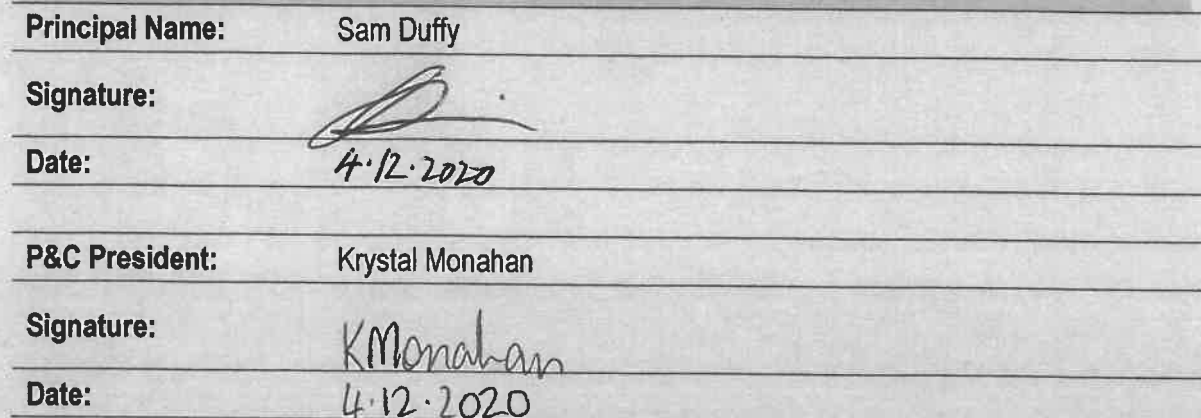 Principal Name: Sam Duffy
Signature:
Date: 4.12.2020
P&C President: Krystal Monahan
Signature: KMonahan
Date: 4.12.2020